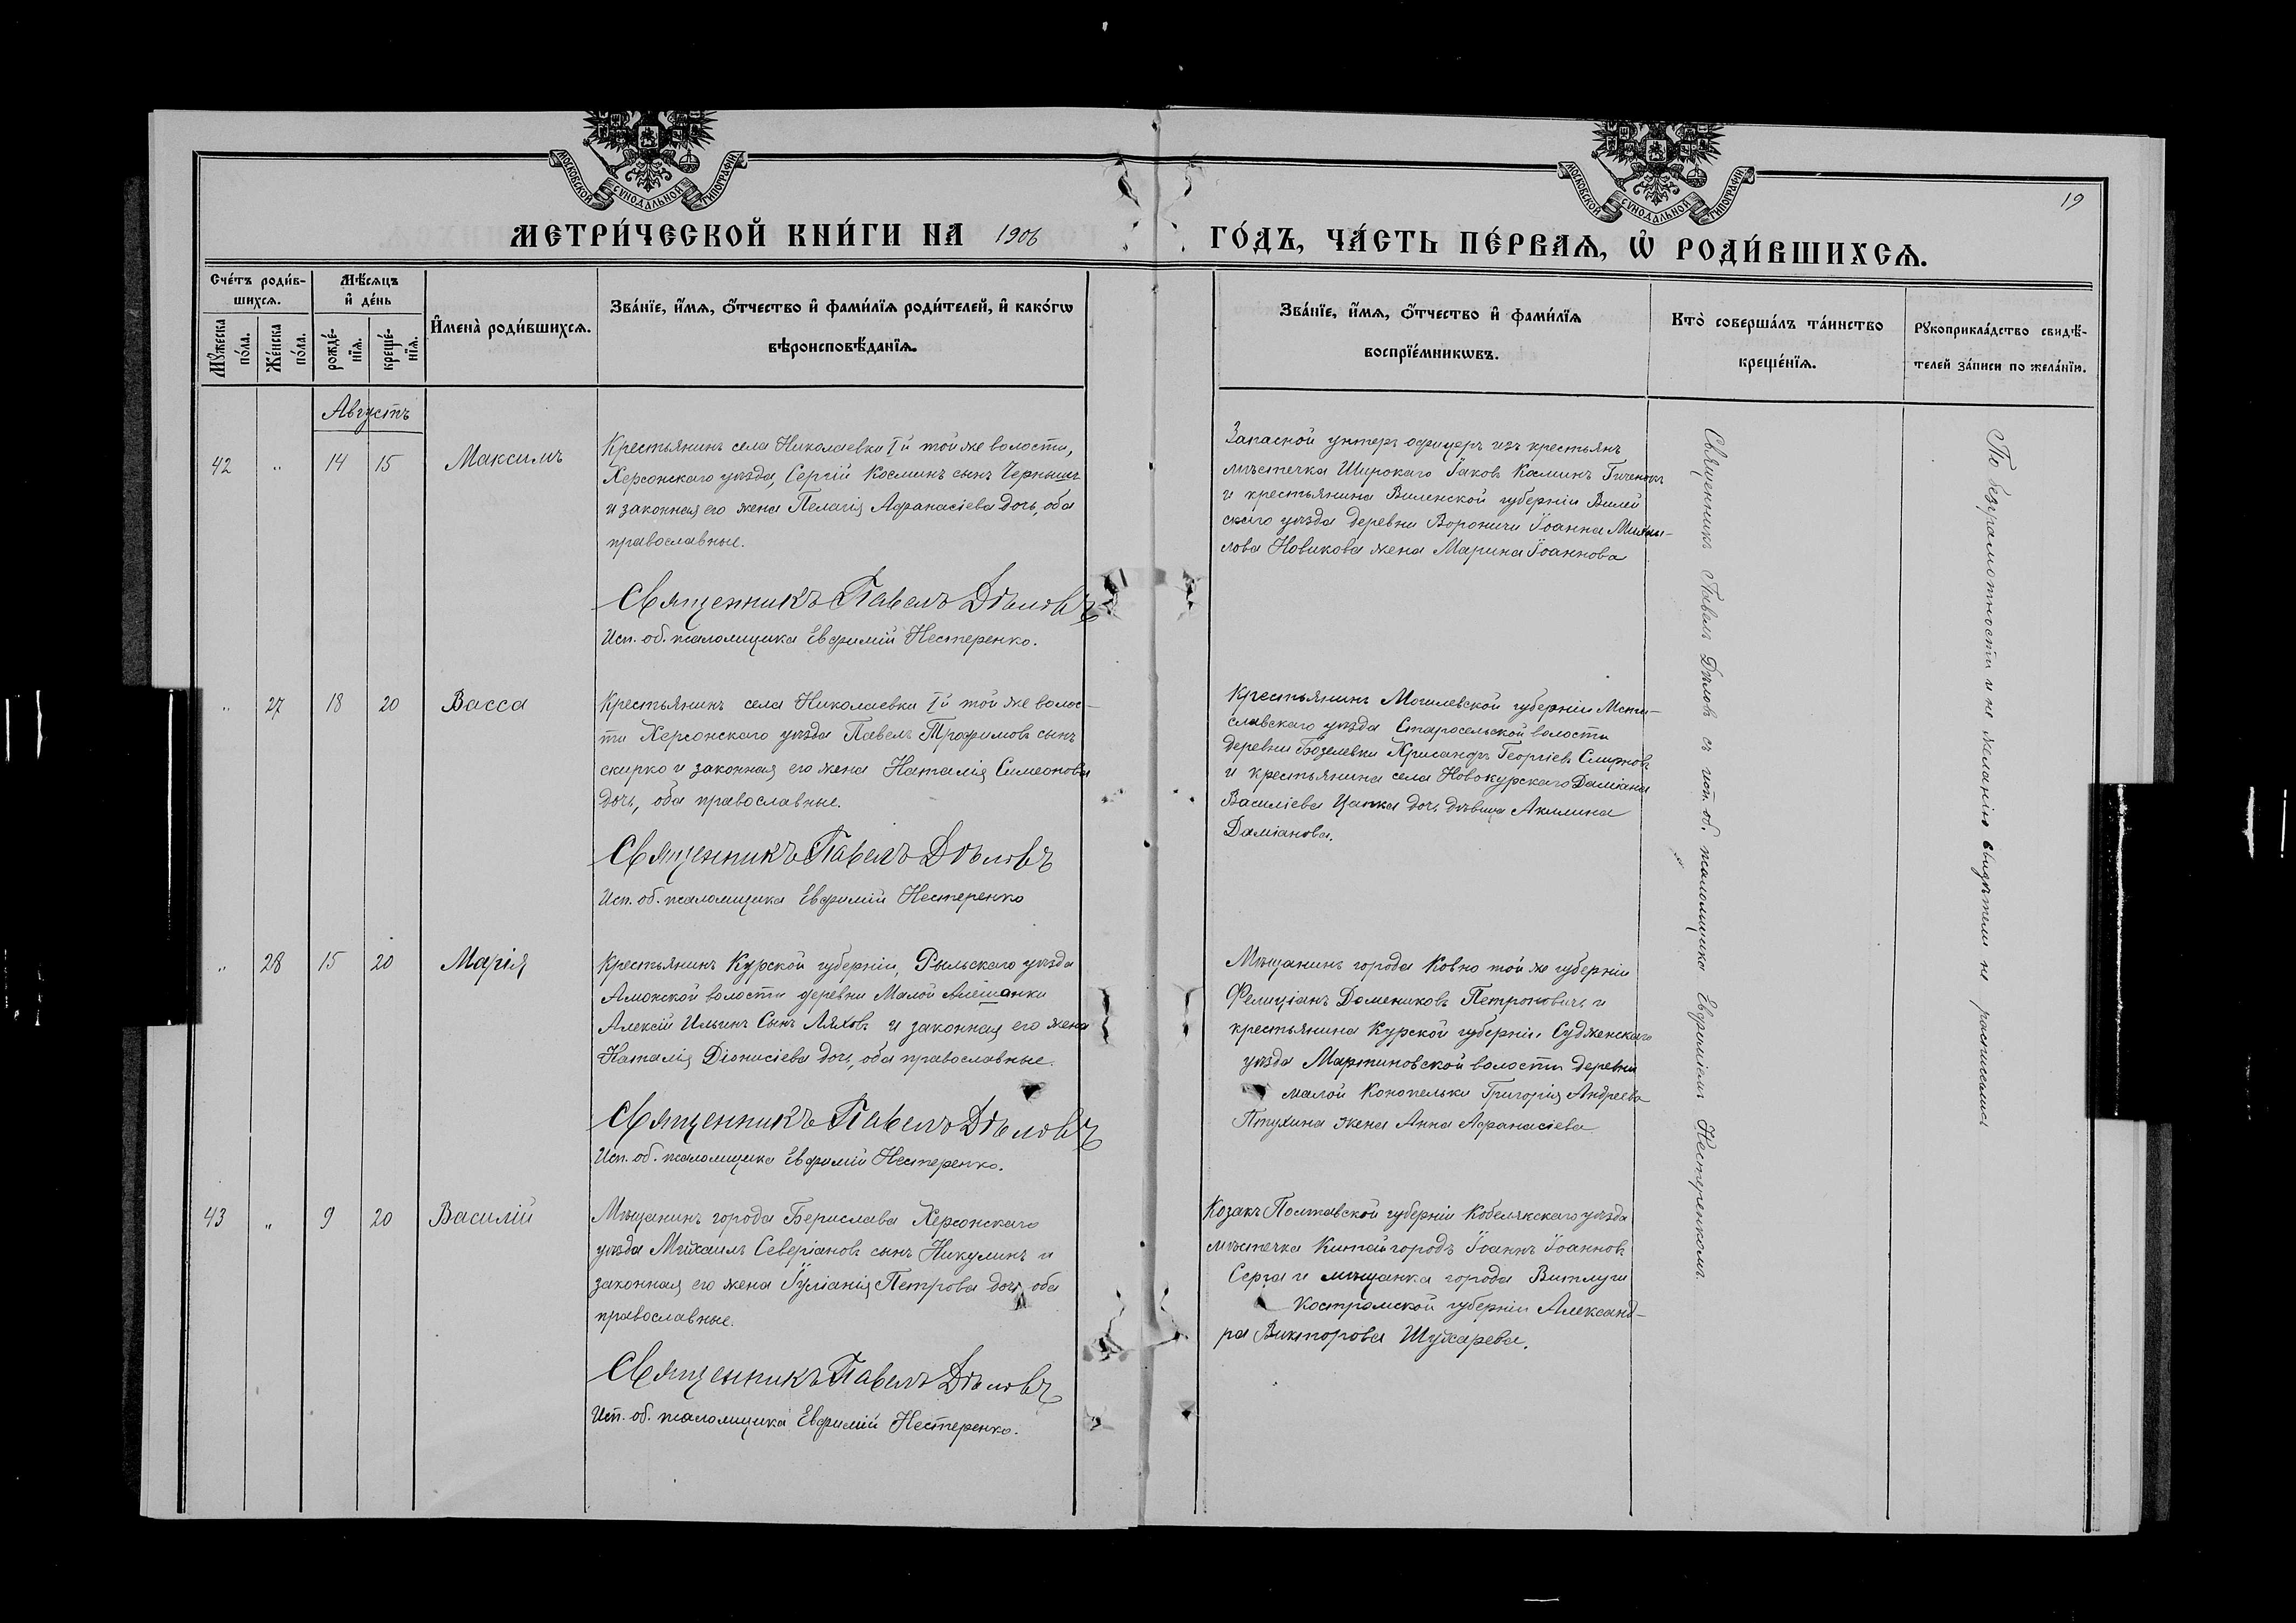 МОСКОВСКОЙ СѴНОДАЛЬНОЙ ТИПОГРАФІИ
МОСКОВСКОЙ СѴНОДАЛЬНОЙ ТИПОГРАФІИ
19
МЕТРИ́ЧЕСКОЙ КНИ́ГИ НА 1906
ГО́ДЪ, ЧА́СТЬ ПЕ́РВАѦ, Ѡ҆ РОДИ́ВШИХСѦ.
Сче́тъ роди́в-
шихсѧ.
Мꙋ́жеска
по́ла.
Же́нска
по́ла.
Мѣ́сѧцъ
и҆ де́нь
рожде́-
нїѧ.
креще́-
нїѧ.
И҆мена̀ роди́вшихсѧ.
Зва́нїе, и҆́мѧ, ѻ҆́тчество и҆ фами́лїѧ роди́телей, и҆ како́гѡ
вѣроисповѣ́данїѧ.
Зва́нїе, и҆́мѧ, ѻ҆́тчество и҆ фами́лїѧ
воспрїе́мникѡвъ.
Кто̀ соверша́лъ та́инство
креще́нїѧ.
Рꙋкоприкла́дство свидѣ́-
телей за́писи по жела́нїю.
Августъ
42 " 14 15 Максимъ
Крестьянинъ села Николаевки Iй той же волости,
Херсонскаго уѣзда, Сергій Косминъ сынъ Чернышъ
и законная его жена Пелагія Афанасіева дочь, оба
православные.
Священникъ Павелъ Дѣловъ
Исп. об. псаломщика Евфимій Нестеренко.
Запасной унтеръ офицеръ изъ крестьянъ
мѣстечка Широкаго Іаковъ Косминъ
и крестьянина Виленской губерніи Вилей
скаго уѣзда деревни Вороничи Іоанна
лова Новикова жена Марина Іоаннова
" 27 18 20 Васса
Крестьянинъ села Николаевки Iй той же волос-
ти Херсонскаго уѣзда Павелъ Трофимовъ сынъ
скирко и законная его жена Наталія Симеонова
дочь, оба православные.
Священникъ Павелъ Дѣловъ
Исп. об. псаломщика Евфимій Нестеренко
Крестьянинъ Могилевской губерніи Мсти-
славскаго уѣзда Старосельской волости
деревни Хрисанфъ Георгіевъ Смирновъ
и крестьянина села Новокурскаго Даміана
Василіева Цапка дочь дѣвица Акилина
Даміанова.
" 28 15 20 Марія
Крестьянинъ Курской губерніи, Рыльскаго уѣзда
Амонской волости деревни Малой Алешанки
Алексій Ильинъ Сынъ Ляховъ и законная его жена
Наталія Діонисіева дочь, оба православные.
Священникъ Павелъ Дѣловъ
Исп. об. псаломщика Евфимій Нестеренко.
Мѣщанинъ города Ковно той же губерніи
Фелиціанъ Домениковъ Петроновичъ и
крестьянина Курской губерніи Судженскаго
уѣзда Мартиновской волости деревни
малой Конопельки Григорія Андреева
Птухина жена Анна Афанасіева
43 " 9 20 Василій
Мѣщанинъ города Берислава Херсонскаго
уѣзда Михаилъ Северіановъ сынъ Никулинъ и
законная его жена Іуліанія Петрова дочь оба
православные.
Священникъ Павелъ Дѣловъ
Исп. об. псаломщика Евфимій Нестеренко.
Козакъ Полтавской губерніи Кобелякскаго уѣзда
мѣстечка Китайгородъ Іоаннъ Іоанновъ
Серга и мѣщанка города Витлуги
Костромской губерніи Александ-
ра Викторова Шухарева.
Священникъ Павелъ Дѣловъ съ исп. об. псаломщика Евфиміемъ Нестеренкомъ.
По безграмотности и не желанію свидѣтели не расписались